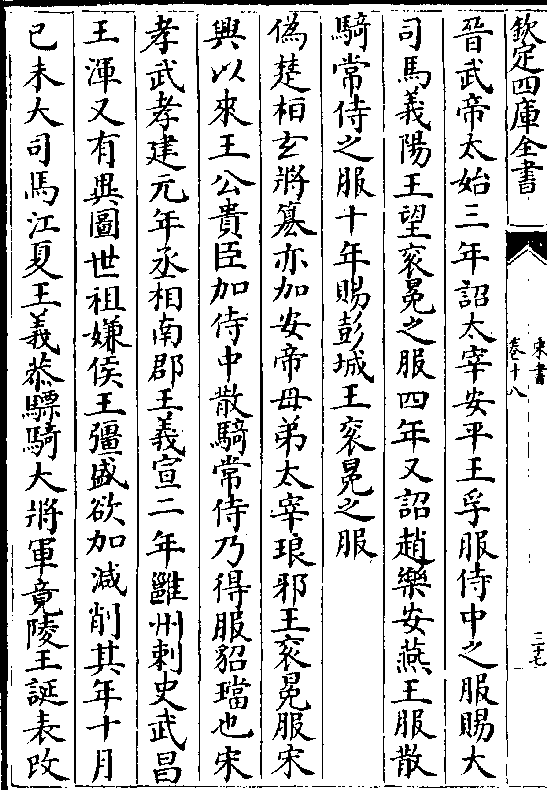 欽定四庫全書
宋書
卷十八
三十七
晉武帝太始三年詔太宰安平王孚服侍中之服賜大
司馬義陽王望衮冕之服四年又詔趙樂安燕王服散
騎常侍之服十年賜彭城王衮冕之服
偽楚桓玄將篡亦加安帝母弟太宰琅邪王衮冕服宋
興以來王公貴臣加侍中散騎常侍乃得服貂璫也宋
孝武孝建元年丞相南郡王義宣二年雝州刺史武昌
王渾又有異圖世祖嫌侯王彊盛欲加減削其年十月
已未大司馬江夏王義恭驃騎大將軍竟陵王誕表改